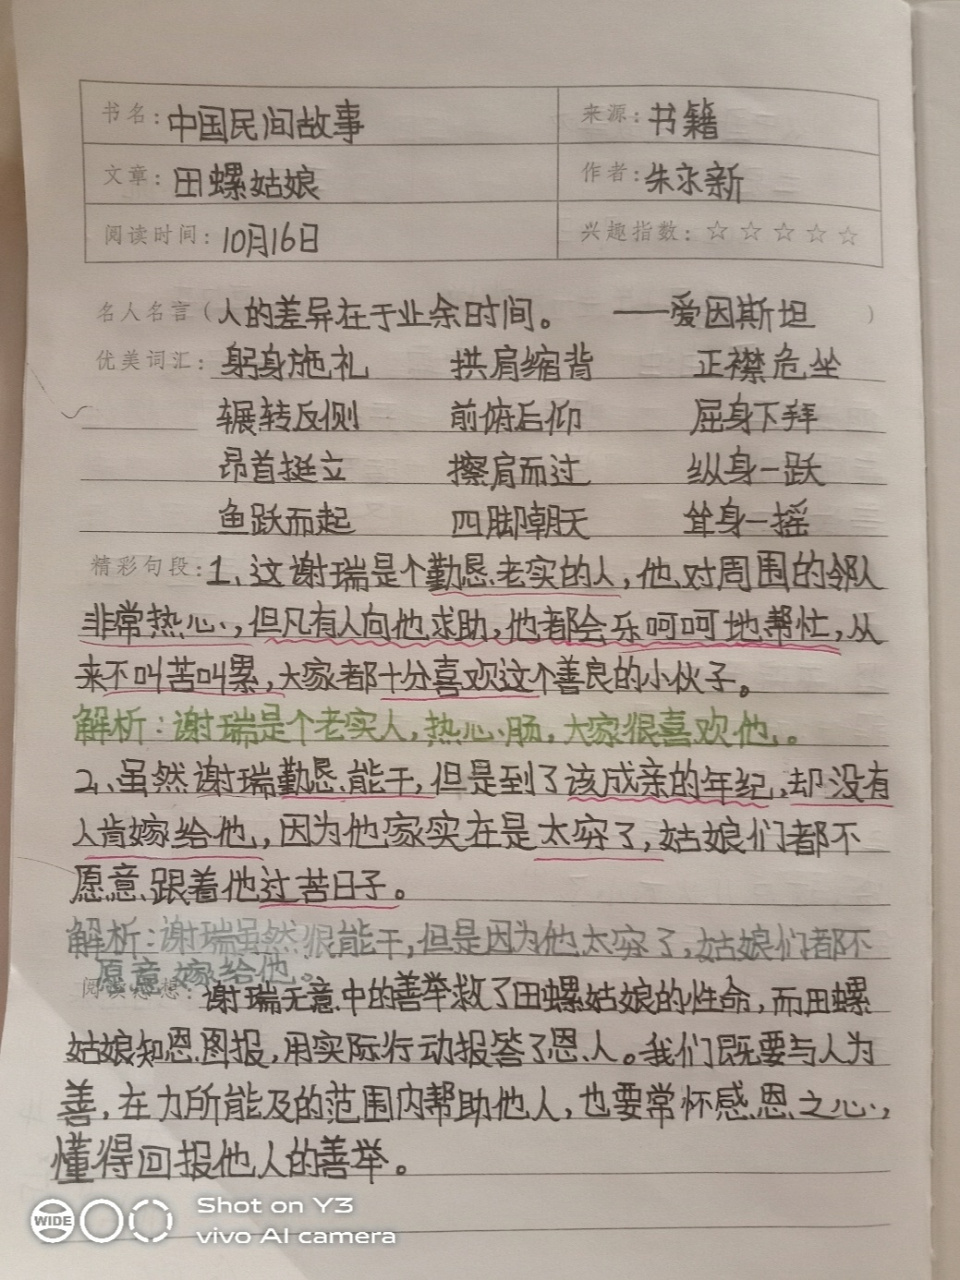 书名：中国民间故事 来源：书籍
文章：田螺姑娘 作者：朱永新
阅读时间：10月16日 兴趣指数：☆☆☆☆☆
名人名言（人的差异在于业余时间。 ——爱因斯坦）
优美词汇：躬身施礼 拱肩缩背 正襟危坐
辗转反侧 前俯后仰 屈身下拜
昂首挺立 擦肩而过 纵身一跃
鱼跃而起 四脚朝天 耸身一摇
精彩句段：1、这谢瑞是个勤恳老实的人，他对周围的邻人
非常热心，但凡有人向他求助，他都会乐呵呵地帮忙，从
来不叫苦叫累，大家都十分喜欢这个善良的小伙子。
解析：谢瑞是个老实人，热心肠，大家很喜欢他。
2、虽然谢瑞勤恳能干，但是到了该成亲的年纪，却没有
人肯嫁给他，因为他家实在是太穷了，姑娘们都不
愿意跟着他过苦日子。
解析：谢瑞虽然很能干，但是因为他太穷了，姑娘们都不
愿意嫁给他。
阅读感想：谢瑞无意中的善举救了田螺姑娘的性命，而田螺
姑娘知恩图报，用实际行动报答了恩人。我们既要与人为
善，在力所能及的范围内帮助他人，也要常怀感恩之心，
懂得回报他人的善举。
WIDE Shot on Y3
vivo AI camera